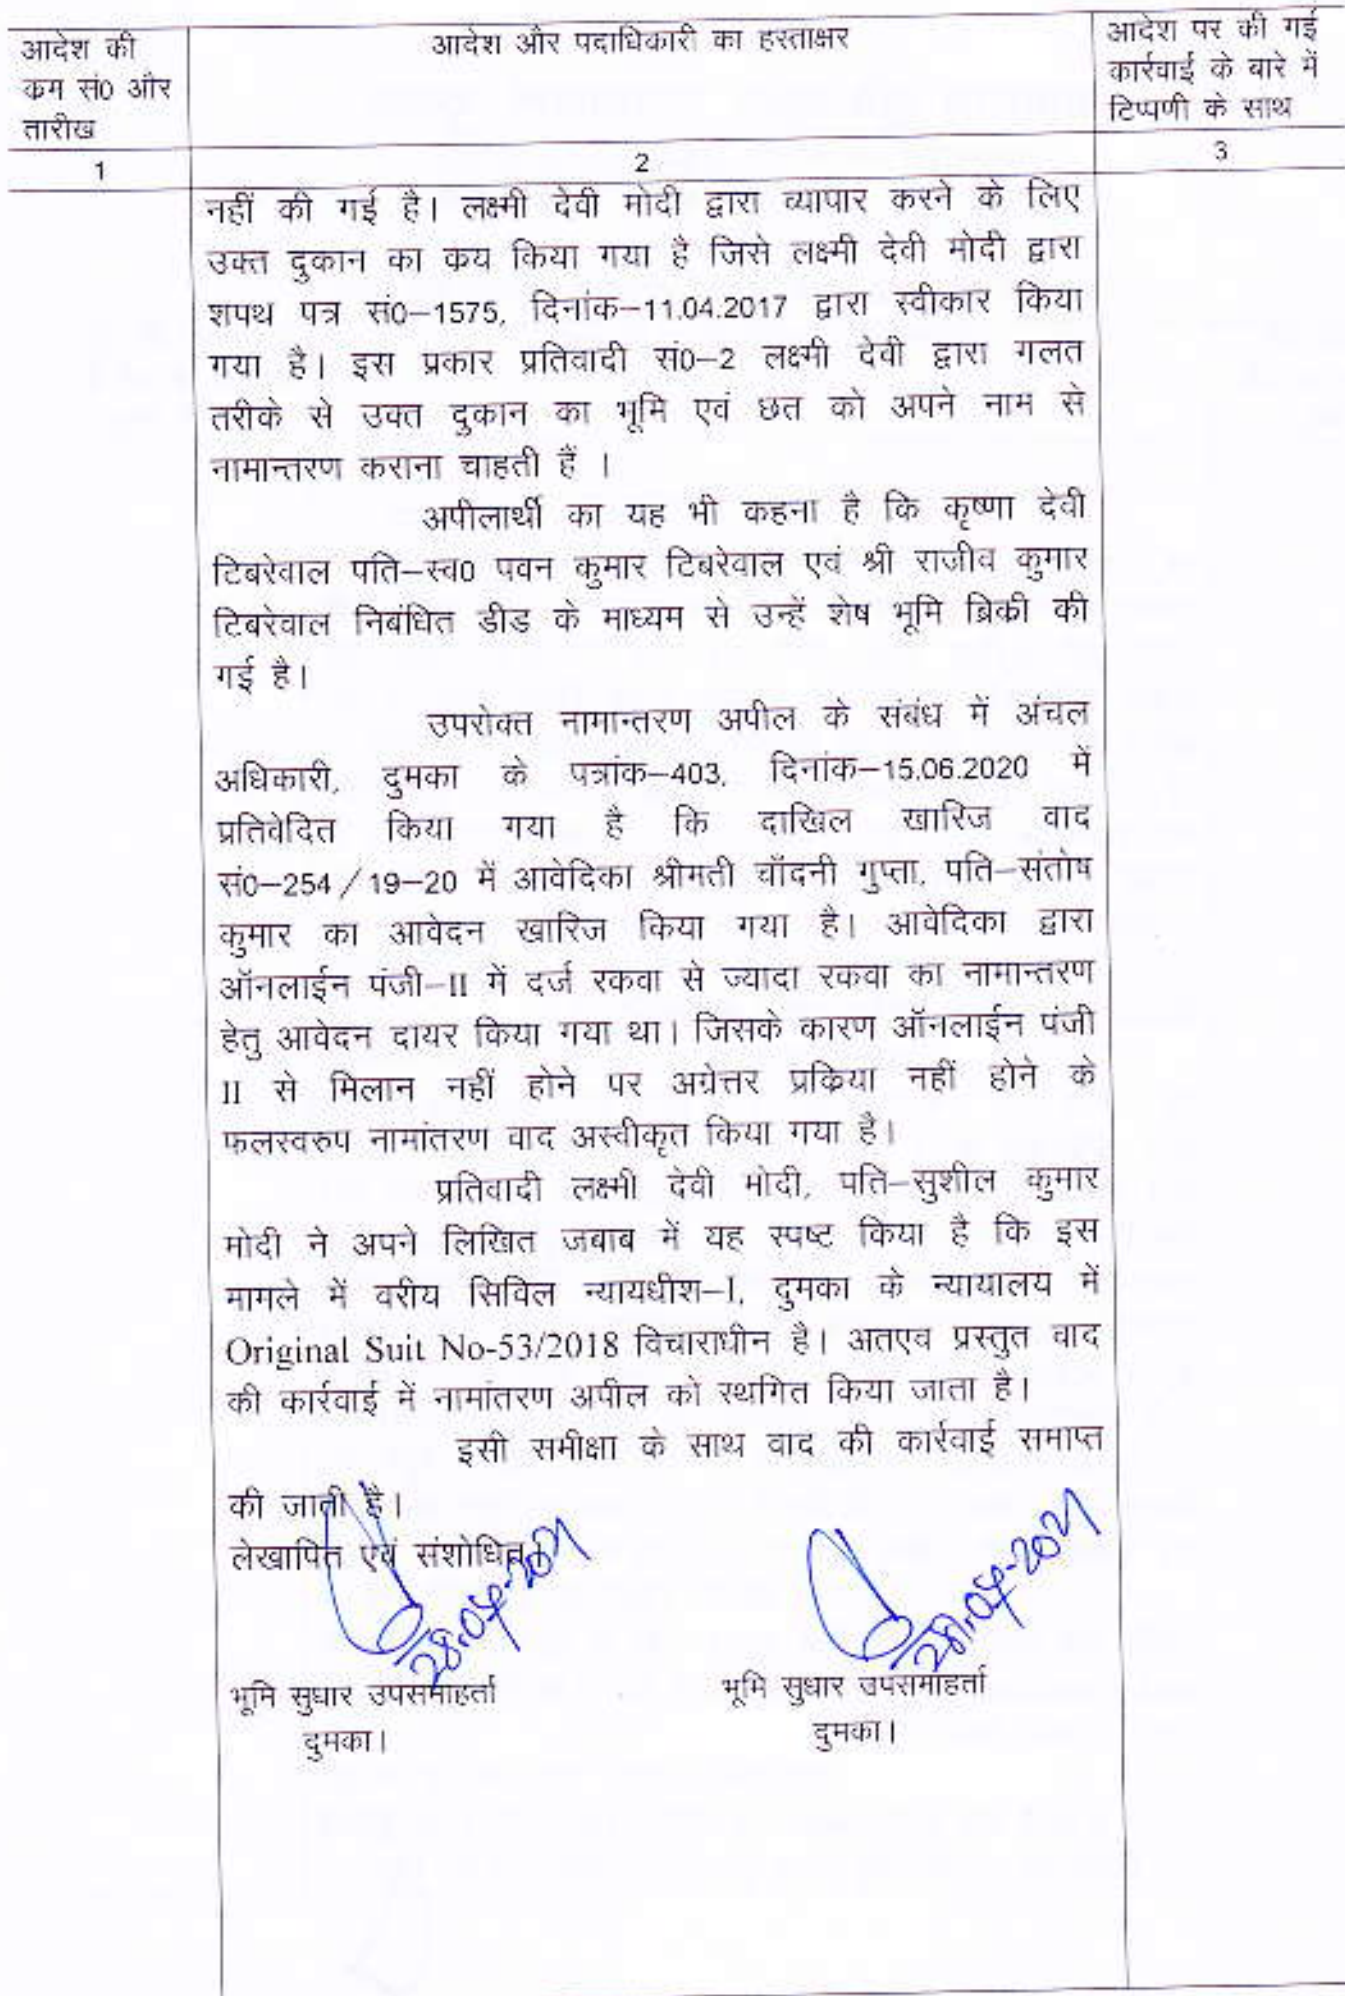 आदेश की
कम सं0 और
तारीख
आदेश और पदाधिकारी का हस्ताक्षर
आदेश पर की गई
कार्रवाई के बारे में
टिप्पणी के साथ
1
2
3
नहीं की गई है। लक्ष्मी देवी मोदी द्वारा व्यापार करने के लिए
उक्त दुकान का कय किया गया है जिसे लक्ष्मी देवी मोदी द्वारा
शपथ पत्र सं0–1575, दिनांक–11.04.2017 द्वारा स्वीकार किया
गया है। इस प्रकार प्रतिवादी सं0–2 लक्ष्मी देवी द्वारा गलत
तरीके से उक्त दुकान का भूमि एवं छत को अपने नाम से
नामान्तरण कराना चाहती हैं ।
अपीलार्थी का यह भी कहना है कि कृष्णा देवी
टिबरेवाल पति–स्व0 पवन कुमार टिबरेवाल एवं श्री राजीव कुमार
टिबरेवाल निबंधित डीड के माध्यम से उन्हें शेष भूमि ब्रिकी की
गई है।
उपरोक्त नामान्तरण अपील के संबंध में अंचल
अधिकारी, दुमका के पत्रांक–403, दिनांक–15.06.2020 में
प्रतिवेदित किया गया है कि दाखिल खारिज वाद
सं0–254/19–20 में आवेदिका श्रीमती चाँदनी गुप्ता, पति–संतोष
कुमार का आवेदन खारिज किया गया है। आवेदिका द्वारा
ऑनलाईन पंजी–II में दर्ज रकवा से ज्यादा रकवा का नामान्तरण
हेतु आवेदन दायर किया गया था। जिसके कारण ऑनलाईन पंजी
II से मिलान नहीं होने पर अग्रेत्तर प्रकिया नहीं होने के
फलस्वरुप नामांतरण वाद अस्वीकृत किया गया है।
प्रतिवादी लक्ष्मी देवी मोदी, पति–सुशील कुमार
मोदी ने अपने लिखित जबाब में यह स्पष्ट किया है कि इस
मामले में वरीय सिविल न्यायधीश–I, दुमका के न्यायालय में
Original Suit No-53/2018 विचाराधीन है। अतएव प्रस्तुत वाद
की कार्रवाई में नामांतरण अपील को स्थगित किया जाता है।
इसी समीक्षा के साथ वाद की कार्रवाई समाप्त
की जाती है।
लेखापित एवं संशोधित।
28.04.2021
28.04.2021
भूमि सुधार उपसमाहर्ता
दुमका।
भूमि सुधार उपसमाहर्ता
दुमका।